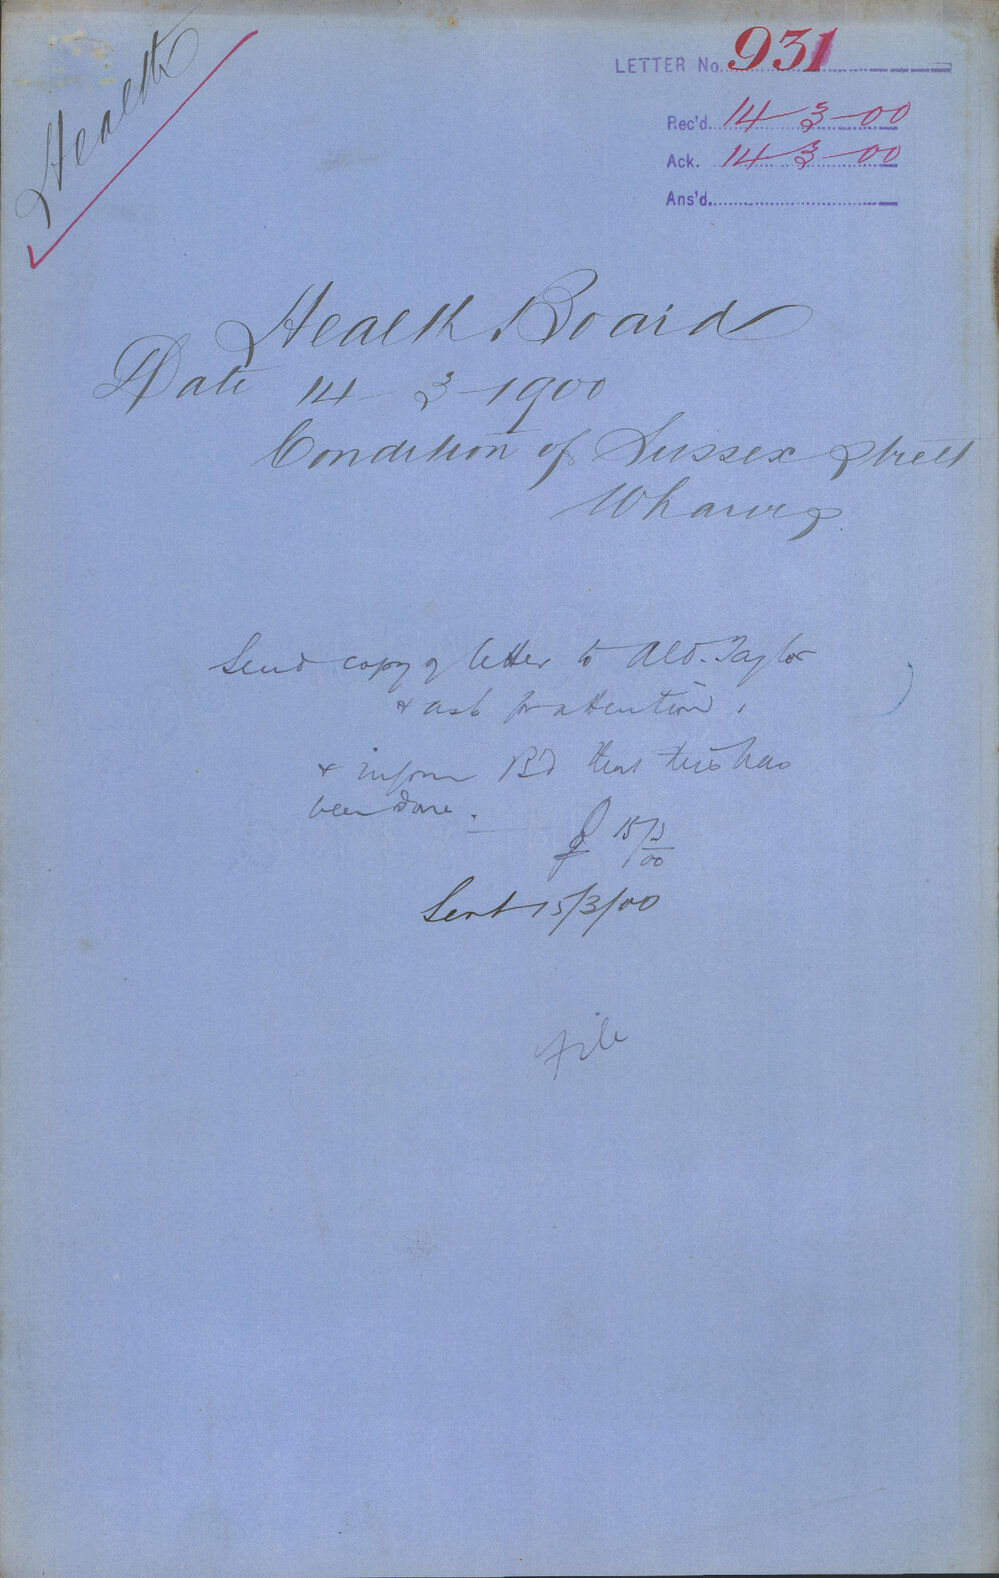 Health
LETTER No. 931
Rec'd. 14-3-00
Ack. 14-3-00
Ans'd.
Health Board
Date 14-3-1900
Condition of Sussex Street
Wharves
Send copy of letter to Ald. Taylor
& ask for attention,
& inform Bd that this has
been done.
15/3/00
Sent 15/3/00
File